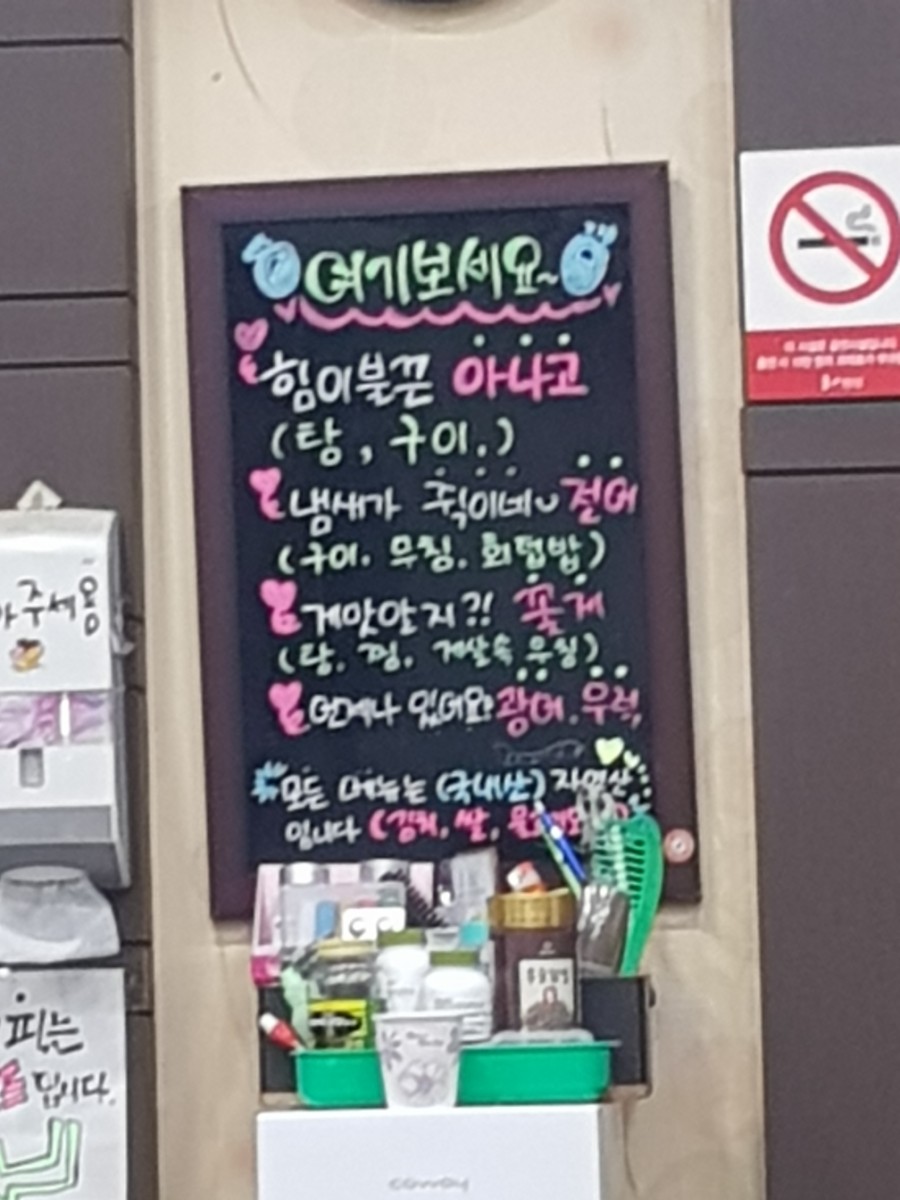 여기보세요~
힘이불끈 아나고
(탕, 구이.)
냄새가 쥑이네~ 전어
(구이. 무침. 회덮밥)
게맛알지?! 꽃게
(탕. 찜. 게살속 무침)
언제나 있어요? 광어. 우럭,
모든 메뉴는 (국내산) 자연산
입니다 (김치. 쌀.
주세용
피는
입니다.
coway